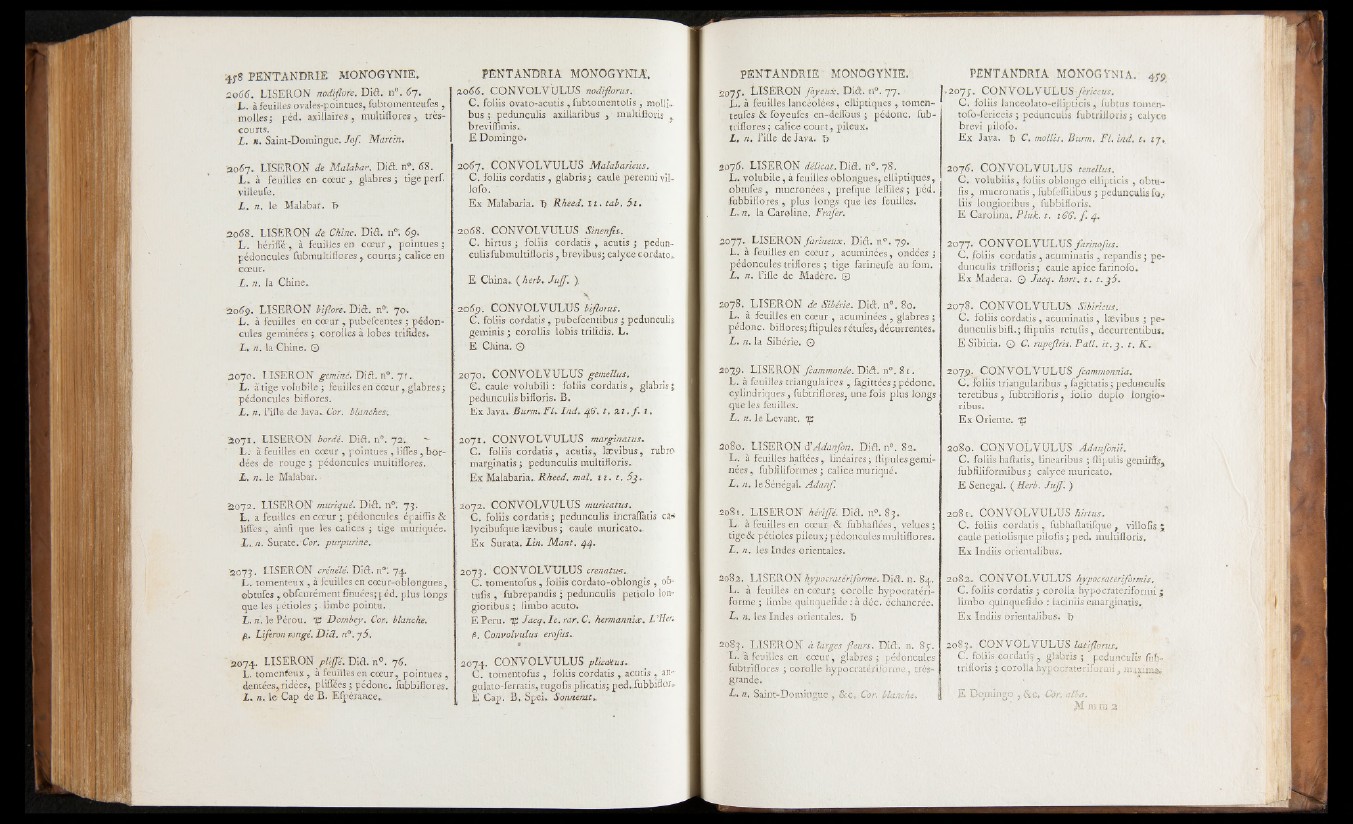 458 PENTANDRIE MONOGYNIE.
2066. LISERON nodiflore. Dict. n°. 67.
L. à feuilles ovales-pointues, subtomenteuses,
molles; péd. axillaires, multiflores, très-
courts.
L. n. Saint-Domingue. Jos. Martin.
2067. LISERON de Malabar. Dict. n°. 68.
L. à feuilles en cœur, glabres; tige pers.
villeuse.
L. n. le Malabar. ♄
2068. LISERON de Chine. Dict. n°. 69.
L. hérissé, à feuilles en cœur, pointues;
pédoncules submultiflores, courts; calice en
cœur.
L. n. la Chine.
2069. LISERON biflore. Dict. n°. 70.
L. à feuilles en cœur, pubescentes; pédon-
cules geminées; corolles à lobes trifides.
L. n. la Chine. ☉
2070. LISERON geminé. Dict. n°. 71.
L. à tige volubile; feuilles en cœur, glabres;
pédoncules biflores.
L. n. l'isle de Java. Cor. blanches.
2071. LISERON bordé. Dict. n°. 72.
L. à feuilles en cœur, pointues, lisses, bor-
dées de rouge; pédoncules multiflores.
L. n. le Malabar.
2072. LISERON muriqué. Dict. n°. 73.
L. a feuilles en cœur; pédoncules épaissis &
lisses, ainsi que les calices; tige muriquée.
L. n. Surate. Cor. purpurine.
2073. LISERON crénelé. Dict. n°. 74.
L. tomenteux, à feuilles en cœur-oblongues,
obtuses, obscurément sinuées; péd. plus longs
que les petioles; limbe pointu.
L. n. le Pérou. ♃ Dombey. Cor. blanche.
β. Liseron rongé. Dict. n°. 75.
2074. LISERON plissé. Dict. n°. 76.
L. tomenteux, à feuilles en cœur, pointues,
dentées, ridées, plissées; pédonc. subbiflores.
L. n. le Cap de B. Espérance.
PENTANDRIA MONOGYNIA.
2066. CONVOLVULUS nodiflorus.
C. foliis ovato-acutis, subtomentosis, molli-
bus; pedunculis axillaribus, multifloris,
brevissimis.
E Domingo.
2067. CONVOLVULUS Malabaricus.
C. foliis cordatis, glabris; caule perenni vil-
loso.
Ex Malabaria. ♄ Rheed. 11. tab. 51.
2068. CONVOLVULUS Sinensis.
C. hirtus; foliis cordatis, acutis; pedun-
culis submultifloris, brevibus; calyce cordato.
E China. (herb. Juss.)
2069. CONVOLVULUS biflorus.
C. foliis cordatis, pubescentibus; pedunculis
geminis; corollis lobis trifidis. L.
E China. ☉
2070. CONVOLVULUS gemellus.
C. caule volubili: foliis cordatis, glabris;
pedunculis bifloris. B.
Ex Java. Burm. Fl. Ind. 46. t. 21. f. 1.
2071. CONVOLVULUS marginatus.
C. foliis cordatis, acutis, lævibus, rubro
marginatis; pedunculis multifloris.
Ex Malabaria. Rheed. mal. 11. t. 53.
2072. CONVOLVULUS muricatus.
C. foliis cordatis; pedunculis incrassatis ca-
lycibusque lævibus; caule muricato.
Ex Surata. Lin. Mant. 44.
2073. CONVOLVULUS crenatus.
C. tomentosus, foliis cordato-oblongis, ob-
tusis, subrepandis; pedunculis petiolo lon-
gioribus; limbo acuto.
E Peru. ♃ Jacq. Ic. rar. C. hermanniæ. L'Her.
β. Convolvulus erosus.
2074. CONVOLVULUS plicatus.
C. tomentosus, foliis cordatis, acutis, an-
gulato-serratis, rugosis plicatis; ped. subbiflor.
E Cap. B. Spei. Sonnerat.
PENTANDRIE MONOGYNIE.
2075. LISERON soyeux. Dict. n°. 77.
L. à feuilles lancéolées, elliptiques, tomen-
teuses & soyeuses en-dessous; pédonc. sub-
triflores; calice court, pileux.
L. n. l'isle de Java. ♄
2076. LISERON délicat. Dict. n°. 78.
L. volubile, à feuilles oblongues, elliptiques,
obtuses, mucronées, presque sessiles; péd.
subbiflores, plus longs que les feuilles.
L. n. la Caroline. Fraser.
2077. LISERON farineux. Dict. n°. 79.
L. à feuilles en cœur, acuminées, ondées;
pédoncules triflores; tige farineuse au som.
L. n. l'isle de Madère. ☉
2078. LISERON de Sibérie. Dict. n°. 80.
L. à feuilles en cœur, acuminées, glabres;
pédonc. biflores; stipules rétuses, décurrentes.
L. n. la Sibérie. ☉
2079. LISERON scammonée. Dict. n°. 81.
L. à feuilles triangulaires, sagittées; pédonc.
cylindriques, subtriflores, une fois plus longs
que les feuilles.
L. n. le Levant. ♃
2080. LISERON d'Adanson. Dict. n°. 82.
L. à feuilles hastées, linéaires; stipules gemi-
nées, subfiliformes; calice muriqué.
L. n. le Sénégal. Adans.
2081. LISERON hérissé. Dict. n°. 83.
L. à feuilles en cœur & subhastées, velues;
tige & pétioles pileux; pédoncules multiflores.
L. n. les Indes orientales.
2082. LISERON hypocratériforme. Dict. n. 84.
L. à feuilles en cœur; corolle hypocratéri-
forme; limbe quinquefide: à déc. échancrée.
L. n. les Indes orientales. ♄
2083. LISERON à larges fleurs. Dict. n. 85.
L. à feuilles en cœur, glabres; pédoncules
subtriflores; corolle hypocratériforme, très-
grande.
L. n. Saint-Domingue, &c. Cor. blanche.
PENTANDRIA MONOGYNIA. 459
2075. CONVOLVULUS sericeus.
C. foliis lanceolato-ellipticis, subtus tomen-
toso-sericeis; pedunculis subtrifloris; calyce
brevi piloso.
Ex Java. ♄ C. mollis. Burm. Fl. ind. t. 17.
2076. CONVOLVULUS tenellus.
C. volubilis, foliis oblongo ellipticis, obtu-
sis, mucronatis, subsessilibus; pedunculis fo-
liis longioribus, subbifloris.
E Carolina. Pluk. t. 166. f. 4.
2077. CONVOLVULUS farinosus.
C. foliis cordatis, acuminatis, repandis; pe-
dunculis trifloris; caule apice farinoso.
Ex Madera. ☉ Jacq. hort. 1. t. 35.
2078. CONVOLVULUS Sibiricus.
C. foliis cordatis, acuminatis, lævibus; pe-
dunculis bifl.; stipulis retusis, decurrentibus.
E Sibiria. ☉ C. rupestris. Pall. it. 3. t. K.
2079. CONVOLVULUS scammonnia.
C. foliis triangularibus, sagittatis; pedunculis
teretibus, subtrifloris, folio duplo longio-
ribus.
Ex Oriente. ♃
2080. CONVOLVULUS Adansonii.
C. foliis hastatis, linearibus; stipulis geminis,
subfiliformibus; calyce muricato.
E Senegal. (Herb. Juss.)
2081. CONVOLVULUS hirtus.
C. foliis cordatis, subhastatisque, villosis;
caule petiolisque pilosis; ped. multifloris.
Ex Indiis orientalibus.
2082. CONVOLVULUS hypocrateriformis.
C. foliis cordatis; corolla hypocrateriformi;
limbo quinquefido: laciniis emarginatis.
Ex Indiis orientalibus. ♄
2083. CONVOLVULUS latiflorus.
C. foliis cordatis, glabris; pedunculis sub-
trifloris; corolla hypocrateriformi, maxima.
E Domingo, &c. Cor. alba.
M m m 2